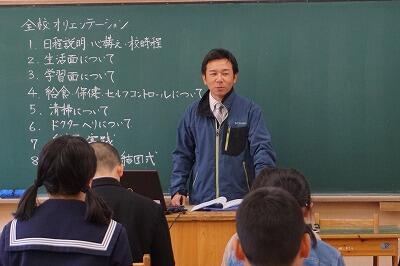 全校オリエンテーション
1. 日程説明・心構え・校時程
2. 生活面について
3. 学習面について
4. 給食・保健・セルフコントロールについて
5. 清掃について
6. ドクターヘリについて
実践
8 結団式